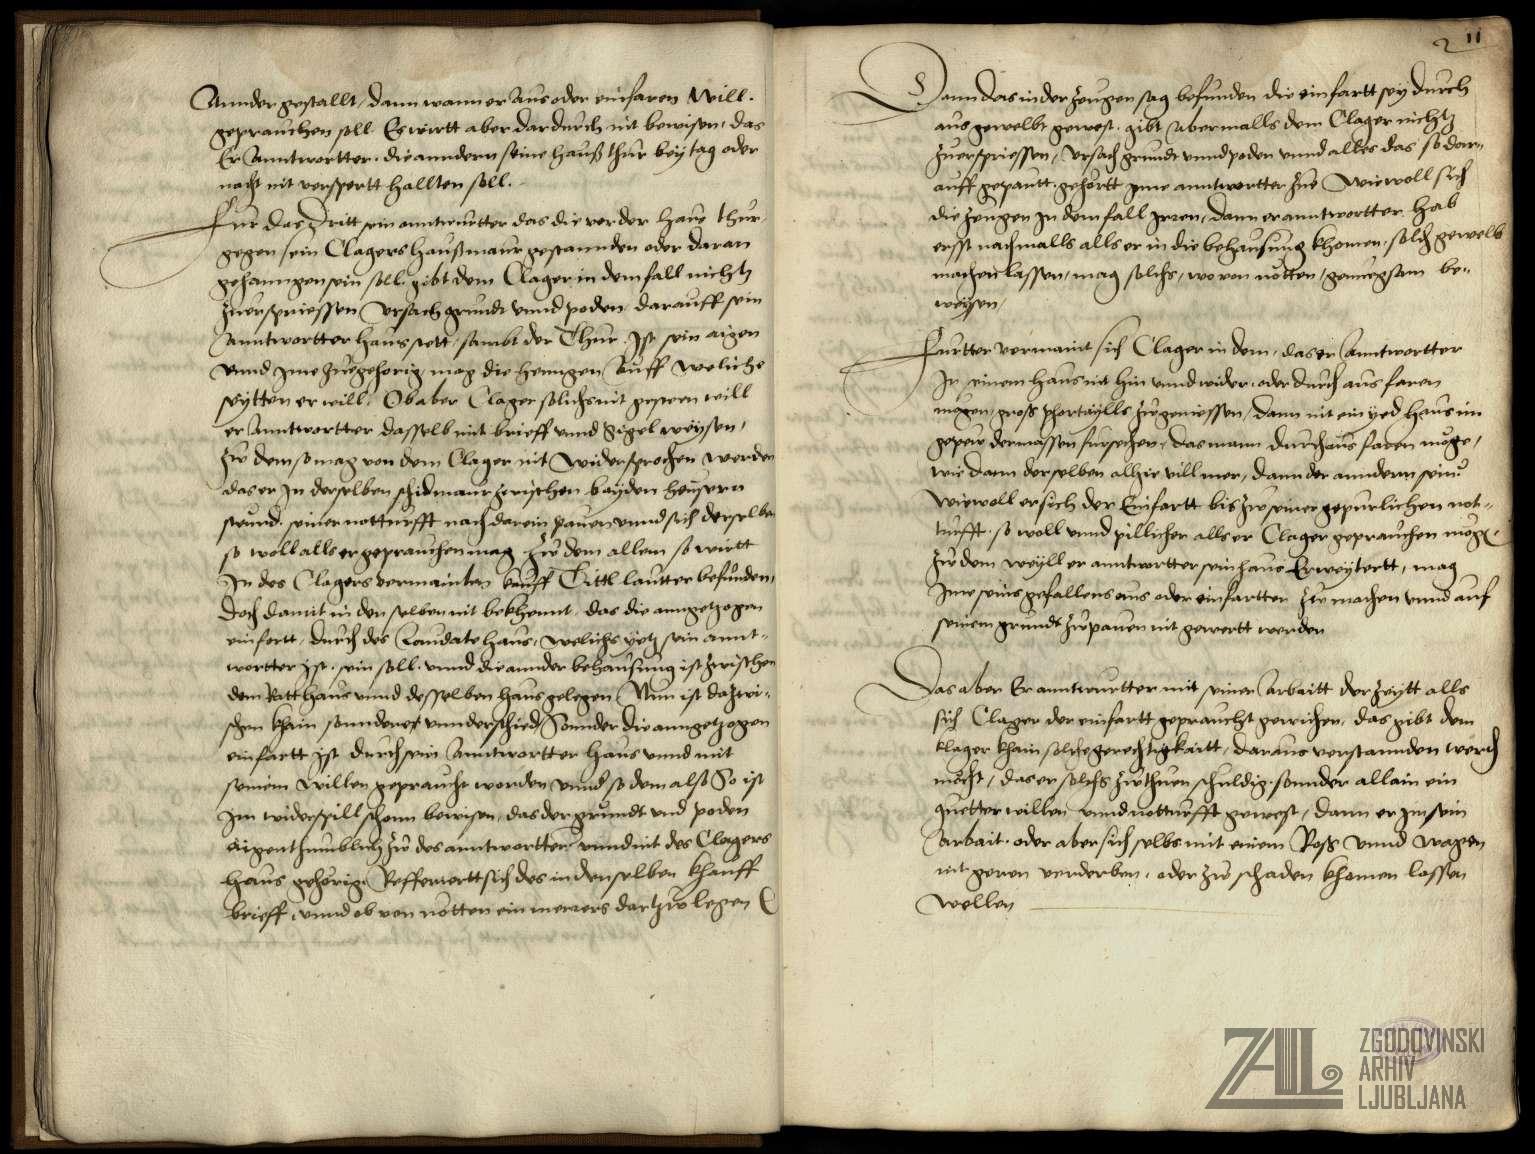 Annder gestallt, dann wann er aus oder einfaren will.
geprauchen soll. Es wirtt aber dardurch nit bewisen, das
Er Anntwortter, die anndern seine hauß thür bey tag oder
nacht nit verspertt hallten soll.
Für das Dritt sein anntwurtter das die vor der haus thür,
gegen sein Clagers haußmaur gestannden oder daran
gehanngen sein soll, gibt dem Clager in dem fall nichtz
zuerspriessen Ursach grundt vnnd poden darauff sein
Anntwortter haus stett, sambt der Thur. Ist sein aigen
vnnd Ime zuegehorig, mag die henngen Auff weliche
seytten er will. Ob aber Clager solichs nit gesteen will
er Anntwortter dasselb mit brieff vnnd Sigel weysen,
Zw dem so mag von dem Clager nit widersprochen werden
das er In derselben schidmaur zwischen bayden heusern
seiner notturfft nach darein pauen vnnd sich derselben
so woll alls er geprauchen mag. Zw dem allem so wirtt
In des Clagers vermainten kauff Tittl lautter befunden,
Doch damit in den selben nit bekhennt, das die anngetzogen
einfartt, durch des Laudate haus, welichs yetz sein annt-
wortter ist, sein soll, vnnd die annder behausung ist zwischen
dem Ratthaus vnnd desselben haus gelegen. Nun ist dazwi-
schen khain sonnder vnnderschied, Sonnder die anngetzogen
einfartt ist durch sein Anntwortter haus vnnd mit
seinem willen gepraucht worden vnnd so dem alß So ist
Im widerspill schonn bewisen, das der grundt vnd poden
Aigenthumblich zw des anntwortter vnnd nit des Clagers
haus gehorig. Refferiertt sich des in denselben khauff
brieff, vnnd ob von notten ein merers dartzw legen
11
Dann das in der zeugen sag befunden die einfartt sey durch
aus gewelbt gewest. gibt abermalls dem Clager nichtz
Zuerspriessen, Ursach grundt vnnd poden vnnd alles das so dar-
auff gepautt. gehortt Ime anntwortter zue Wiewoll sich
die zeugen In dem fall Irren, dann er anntwortter hab
erst nachmalls alls er in die behausung khomen, solch gewelb
machen lassen, mag solchs, wo von nötten, genuegsam be-
weysen,
Furtter vermaint sich Clager in dem, das er Anntwortter
In seinem haus nit hin vnnd wider, oder durch aus faren
mögen, gross phortaylls zwgeniessen, dann nit ein yed haus im
gepew dermassen fursehen, das mann durchaus faren möge,
wie dann derselben allhie vill mer, dann der anndern sein
Wiewoll er sich der Einfartt bis zw seiner gepurlichen not-
turfft, so woll vnnd pillicher alls er Clager geprauchen möge,
Zw dem weyll er anntwortter sein haus Erweytertt, mag
Ime seins gefallens aus oder einfartten zw machen vnnd auf
seinem grundt zwpauen nit gewertt werden
Das aber Er anntwurtter mit seiner Arbaitt der Zeytt alls
sich Clager der einfartt gepraucht gewichen, das gibt dem
klager khain solche gerechtigkaitt, daraus verstannden werd
möcht, das er solchs zw thuen schuldig, sonnder allain ein
guetter willen vnnd notturfft gewest, dann er Im sein
Arbait, oder aber sich selbs mit einem Ross vnnd Wagen
nit geren verderben, oder zw schaden khomen lassen
wellen
ZAL
ZGODOVINSKI
ARHIV
LJUBLJANA